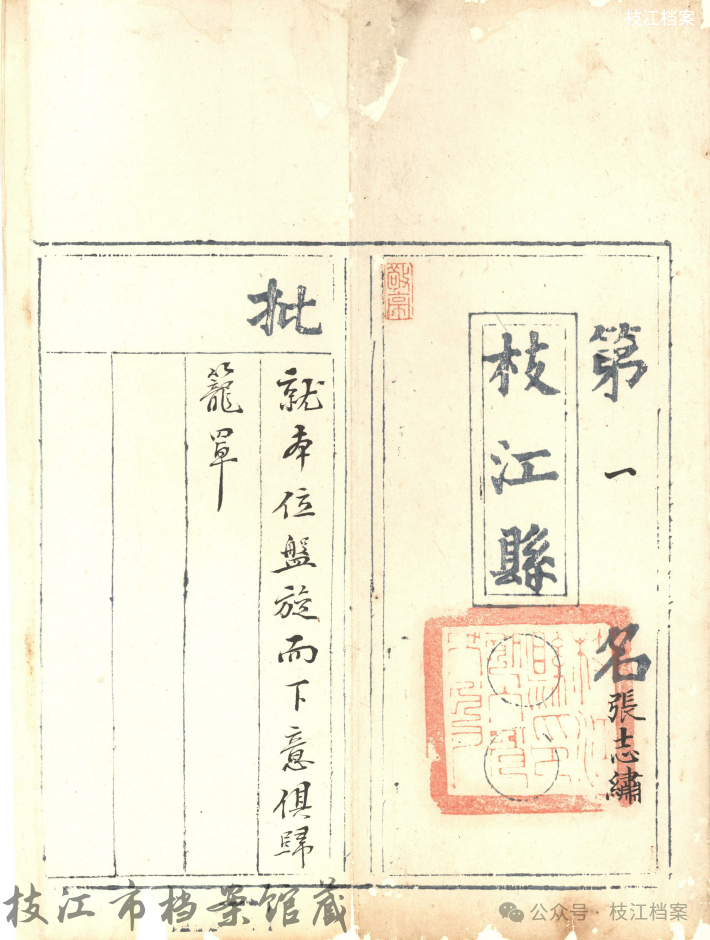 枝江档案
第一名張志繡
枝江縣
敬亭
批
就本位盤旋而下意俱歸
籠罩
枝江市档案馆藏
公众号·枝江档案